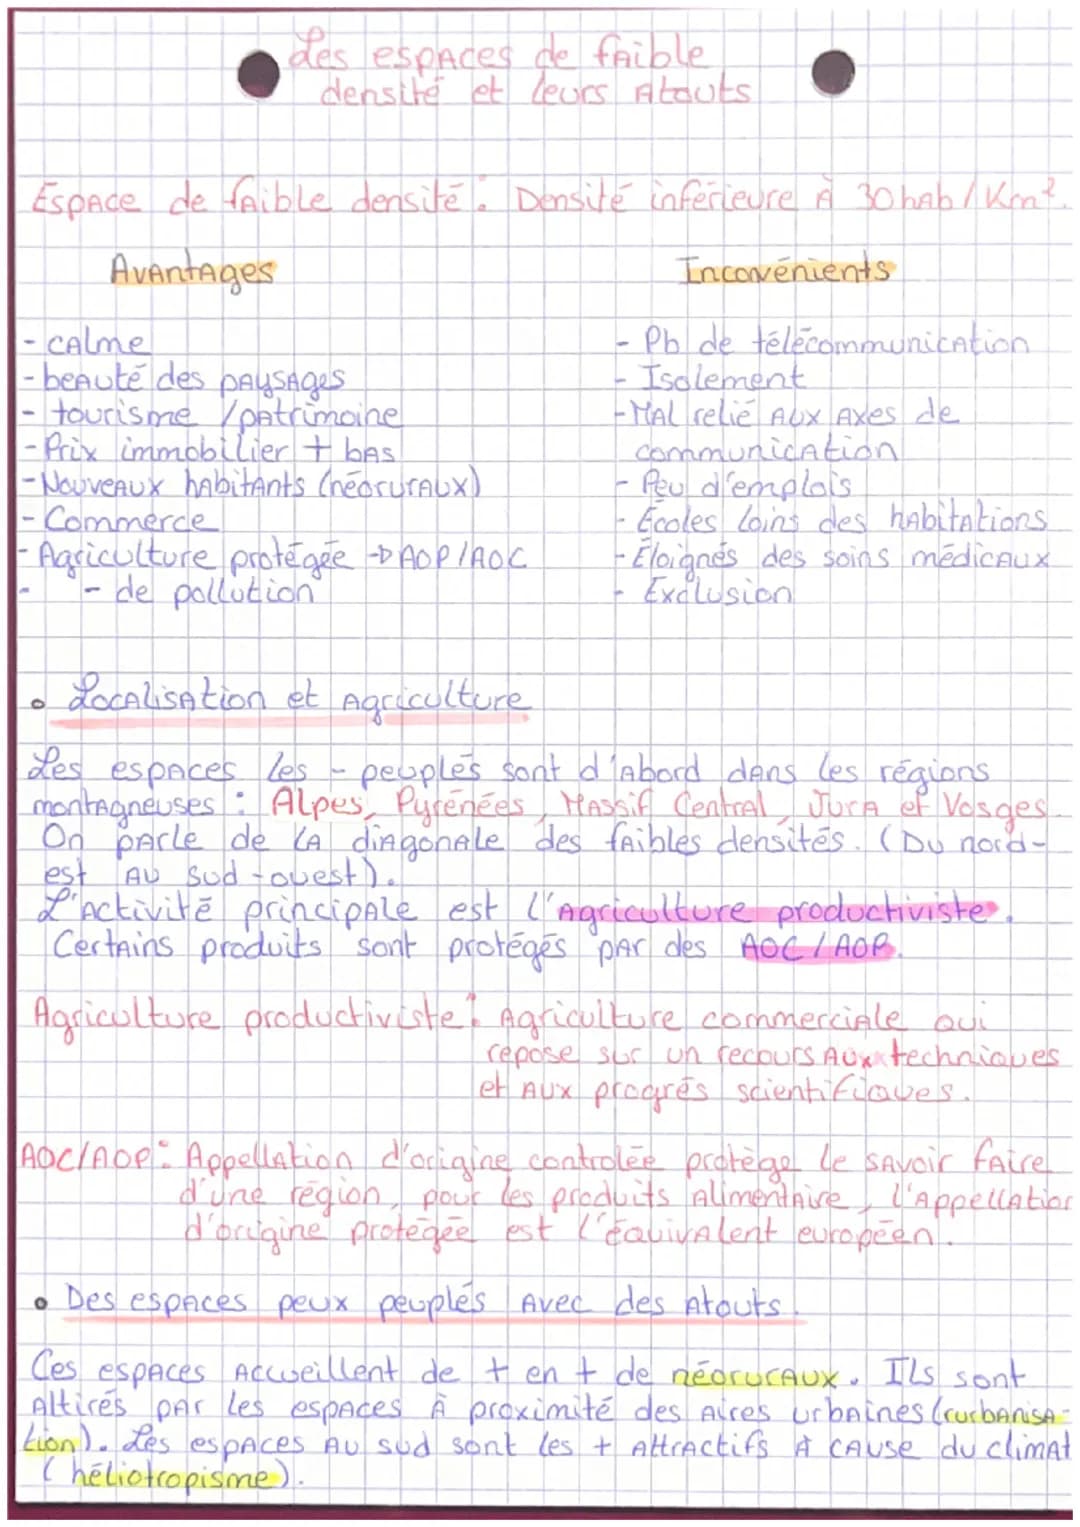 Les espaces de faible
densité et leurs Atouts
Espace de faible densité : Densité inférieure à 30 hab / Km².
Avantages
- calme
- beauté des paysages
- tourisme / patrimoine
- Prix immobilier + bas
- Nouveaux habitants (néoruraux)
- Commerce
- Agriculture protégée → AOP/AOC
- - de pollution
Inconvénients
- Pb de télécommunication
- Isolement
- Mal relié aux axes de
communication
- Peu d'emplois
- Écoles loins des habitations
- Éloignés des soins médicaux
- Exclusion
• Localisation et Agriculture
Les espaces les - peuplés sont d'abord dans les régions
montagneuses : Alpes, Pyrénées, Massif Central, Jura et Vosges.
On parle de la diagonale des faibles densités. (Du nord-
est au sud-ouest).
L'activité principale est l'agriculture productiviste.
Certains produits sont protégés par des AOC / AOP.
Agriculture productiviste : Agriculture commerciale qui
repose sur un recours aux techniques
et aux progrés scientifiques.
AOC/AOP : Appellation d'origine controlée protège le savoir faire
d'une région, pour les produits alimentaire, l'Appellation
d'origine protégée est l'équivalent européen.
• Des espaces peux peuplés avec des atouts.
Ces espaces accueillent de + en + de néoruraux. Ils sont
attirés par les espaces à proximité des aires urbaines (rurbanisa-
tion). Les espaces au sud sont les + attractifs à cause du climat
(héliotropisme).